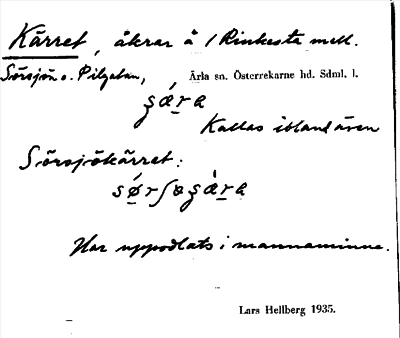 Kärret, åkrar å 1 Rinkesta mell.
Sörsjön o. Pilgatan, Ärla sn. Österrekarne hd. Sdml. l.
Kallas ibland även
Sörsjökärret:
Har uppodlats i mannaminne.
Lars Hellberg 1935.